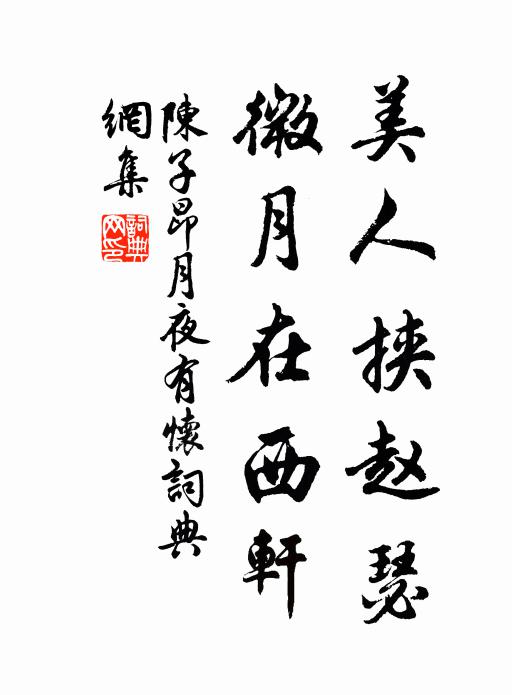 美人挟赵瑟
微月在西軒
陳子昂月夜有懷詞典
網集
詞典网印